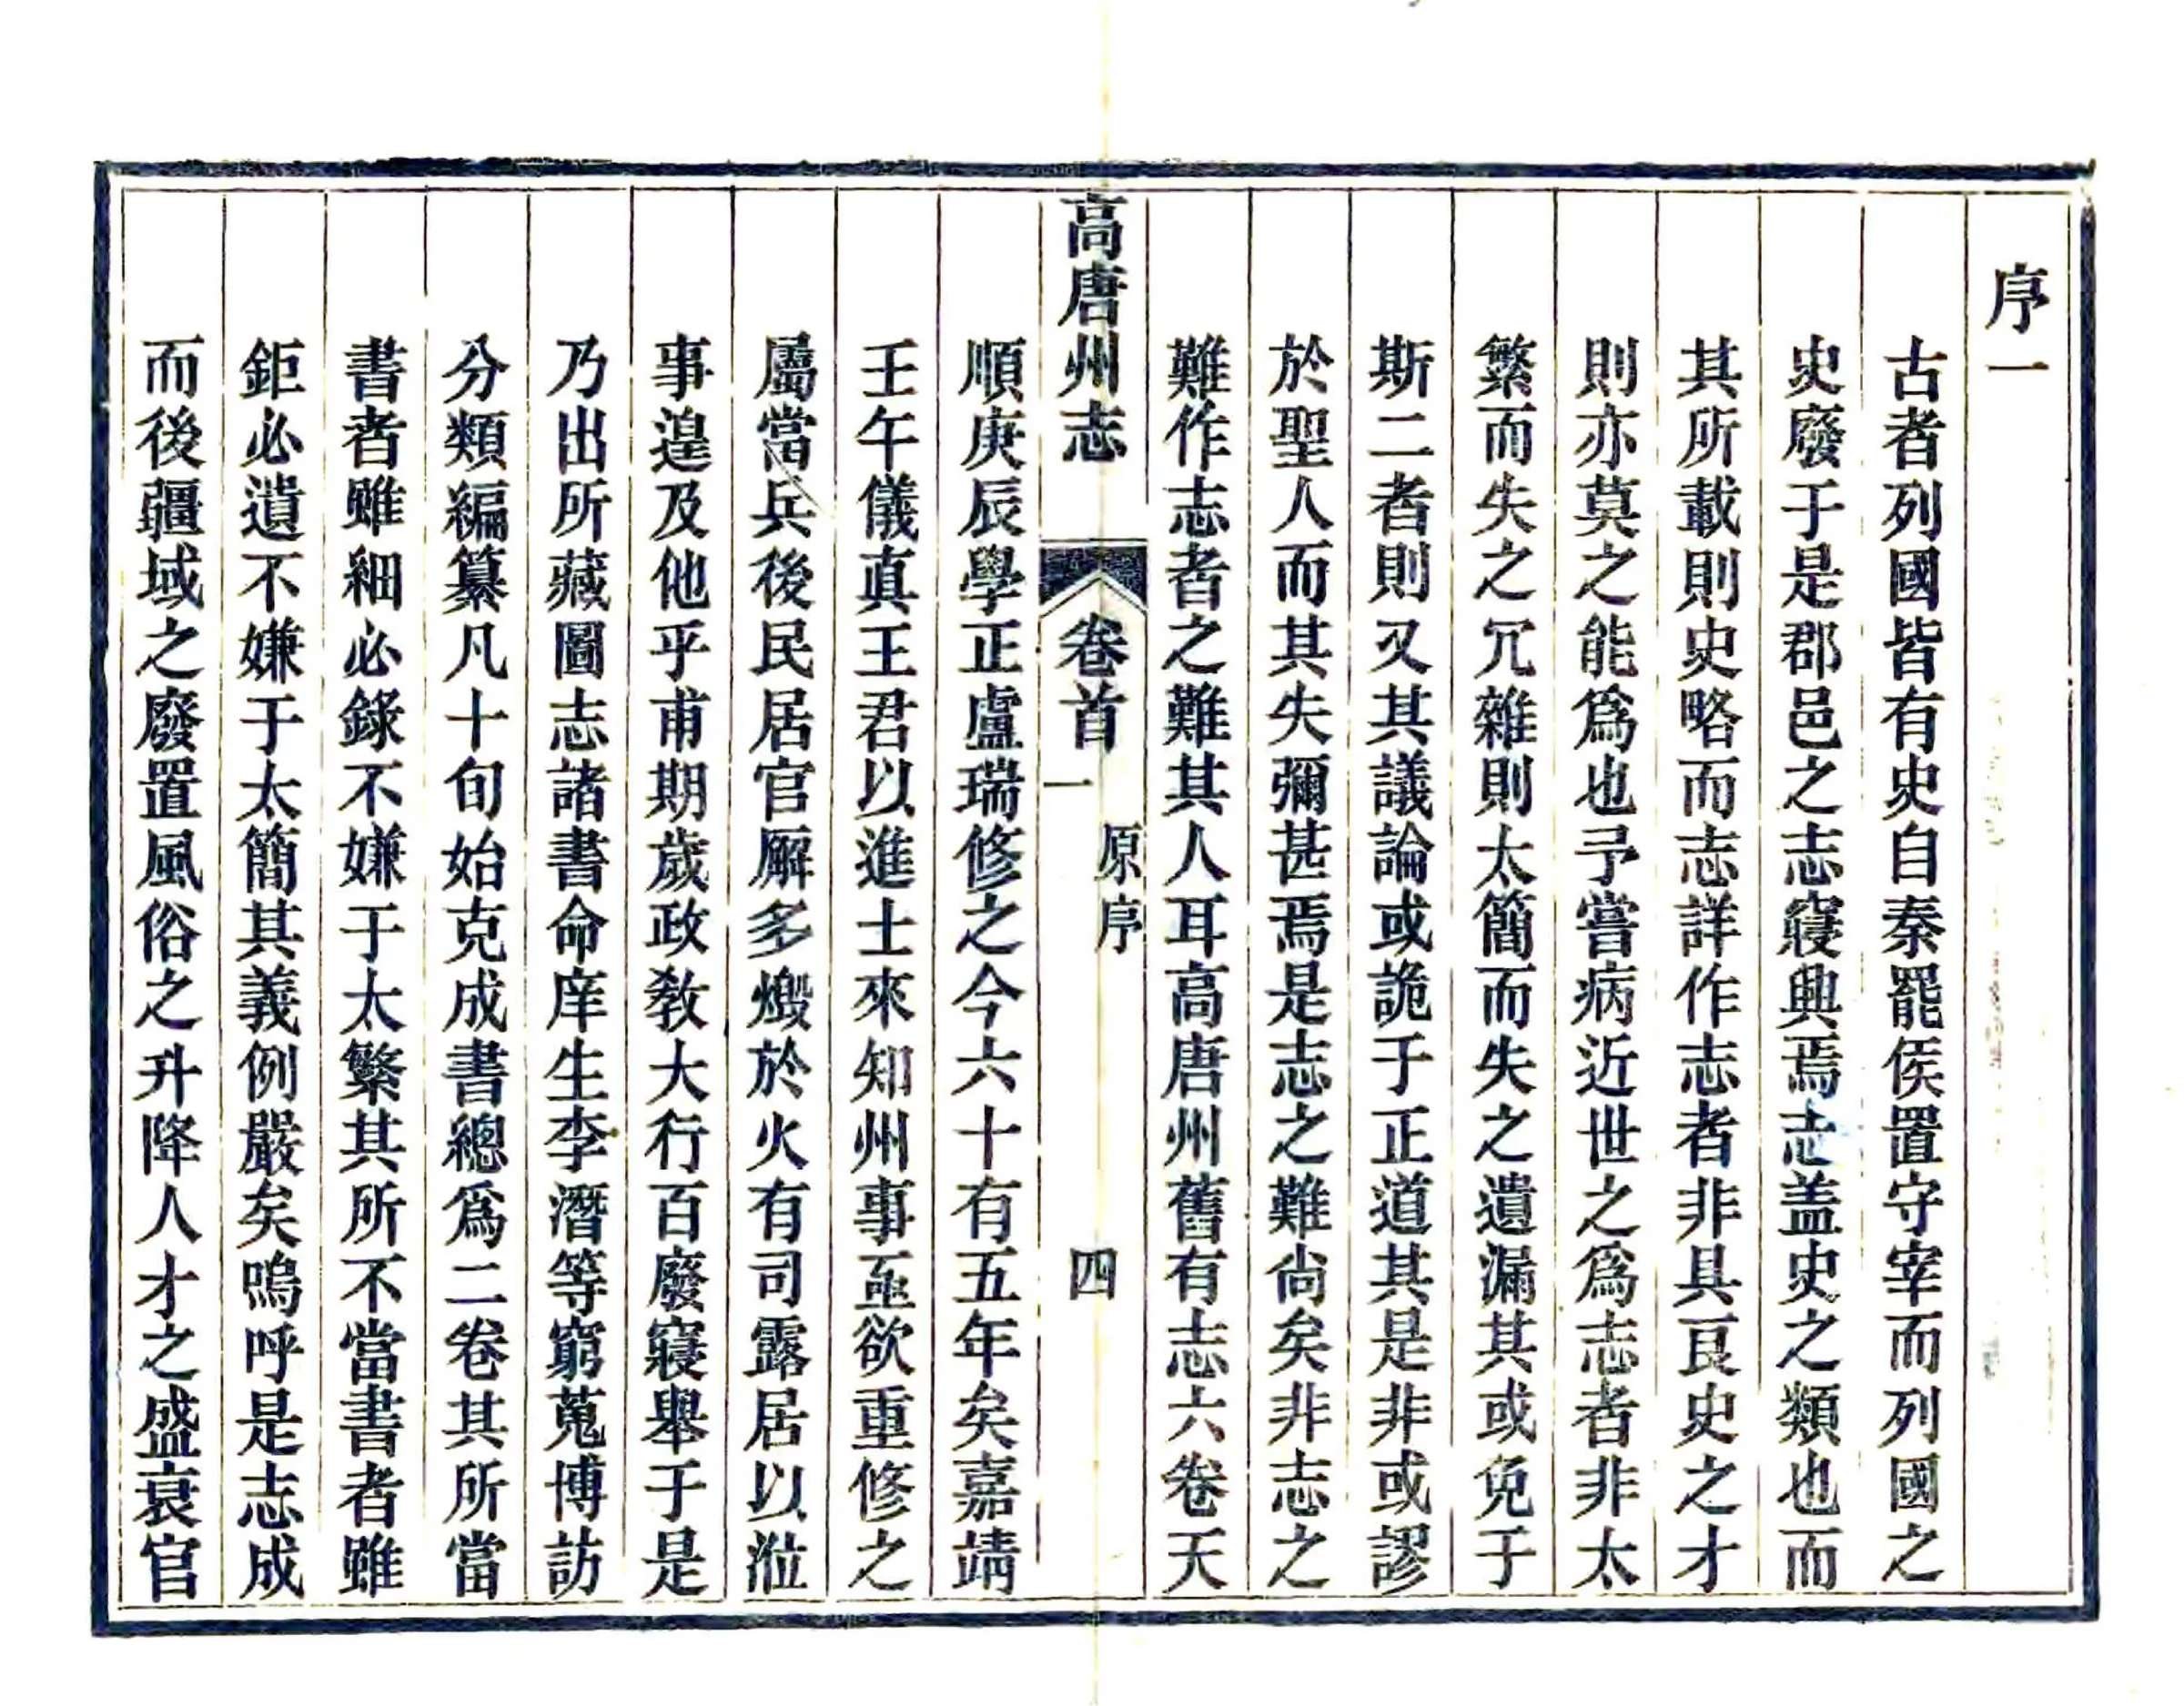 序一
古者列國皆有史自秦罷侯置守宰而列國之
史廢于是郡邑之志寖興焉志盖史之類也而
其所載則史略而志詳作志者非具良史之才
則亦莫之能爲也予嘗病近世之爲志者非太
繁而失之冗雜則太簡而失之遺漏其或免于
斯二者則又其議論或詭于正道其是非或謬
於聖人而其失彌甚焉是志之難尙矣非志之
難作志者之難其人耳高唐州舊有志六卷天
高唐州志 卷首一 原序 四
順庚辰學正盧瑞修之今六十有五年矣嘉靖
壬午儀真王君以進士來知州事亟欲重修之
屬當兵後民居官廨多燬於火有司露居以涖
事遑及他乎甫期歲政教大行百廢寖舉于是
乃出所藏圖志諸書命庠生李潛等窮蒐博訪
分類編纂凡十旬始克成書總爲二卷其所當
書者雖細必錄不嫌于太繁其所不當書者雖
鉅必遺不嫌于太簡其義例嚴矣嗚呼是志成
而後疆域之廢置風俗之升降人才之盛衰官